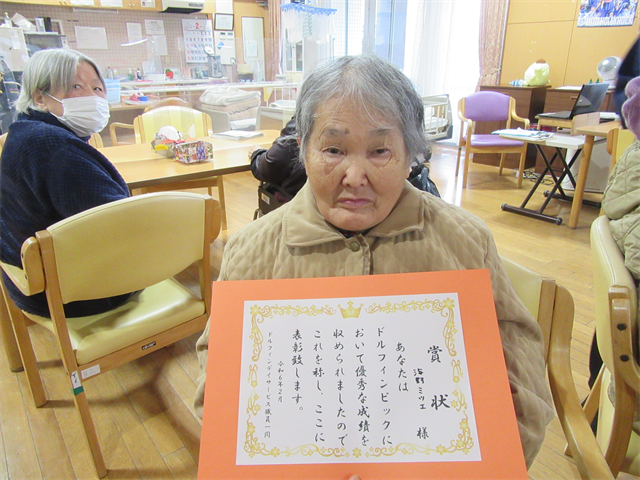 賞状
ミツエ 様
あなたは
ドルフィンピックに
おいて優秀な成績を
収められましたので
これを称し、ここに
表彰致します。
令和6年2月
ドルフィンデイサービス職員一同